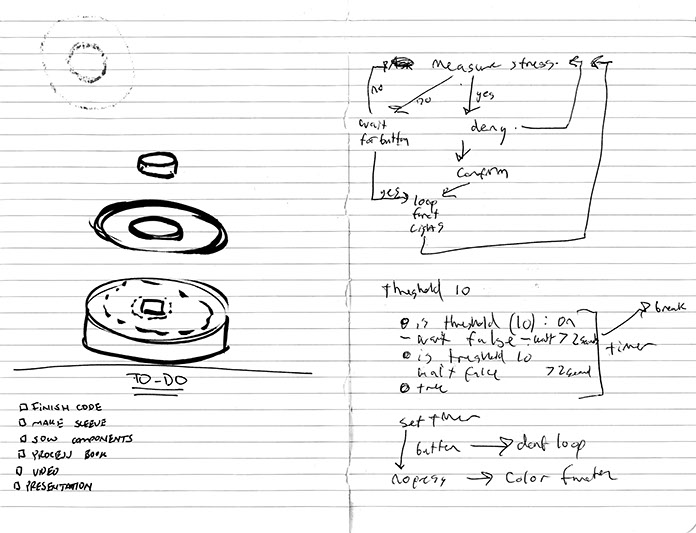 TO-DO
FINISH CODE
MAKE SLEEVE
SOW COMPONENTS
PROCEN BOOK
VIDEO
PRESENTATION
measure stress.
no
no
yes
wait
for button
deny
confirm
yes
loop
lights
threshold 10
is threshold (10) : on
- wait false - wait > 2
is treshold 10
wait false > 2
true
timer
break
set timer
button → dont loop
no press → color